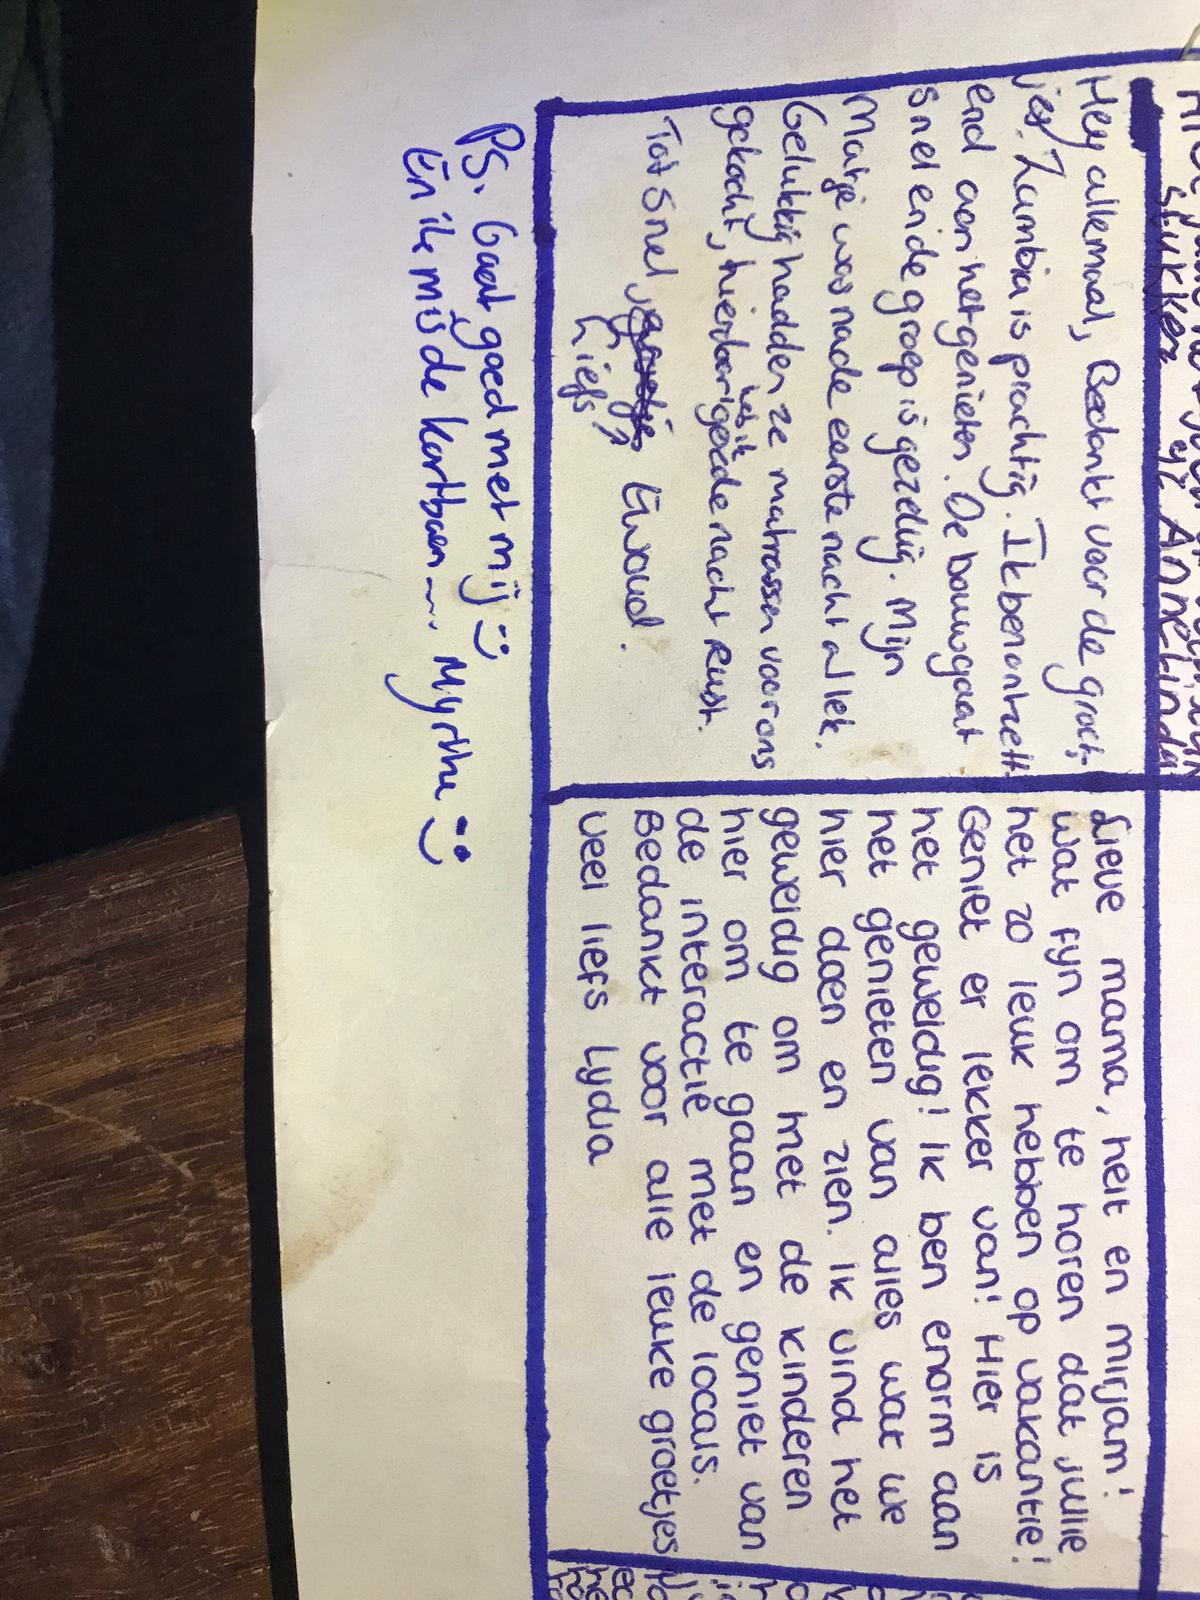 stukken
Annelinda
Hey allemaal, Bedankt voor de groet-
jes. Zambia is prachtig. Ik ben ontzett-
end aan het genieten. De bouw gaat
snel en de groep is gezellig. Mijn
Matje was na de eerste nacht al lek.
Gelukkig hadden ze matrassen voor ons
gekocht, hierdoor heb ik goede nacht rust.
Tot snel, Ewoud.
Liefs,
PS. Gaat goed met mij :)
En ik mis de kartbaan ~~. Myrthe :)
Lieve mama, heit en mirjam!
wat fijn om te horen dat jullie
het zo leuk hebben op vakantie!
Geniet er lekker van! Hier is
het geweldig! Ik ben enorm aan
het genieten van alles wat we
hier doen en zien. Ik vind het
geweldig om met de kinderen
hier om te gaan en geniet van
de interactie met de locals.
Bedankt voor alle leuke groetjes
veel liefs Lydia